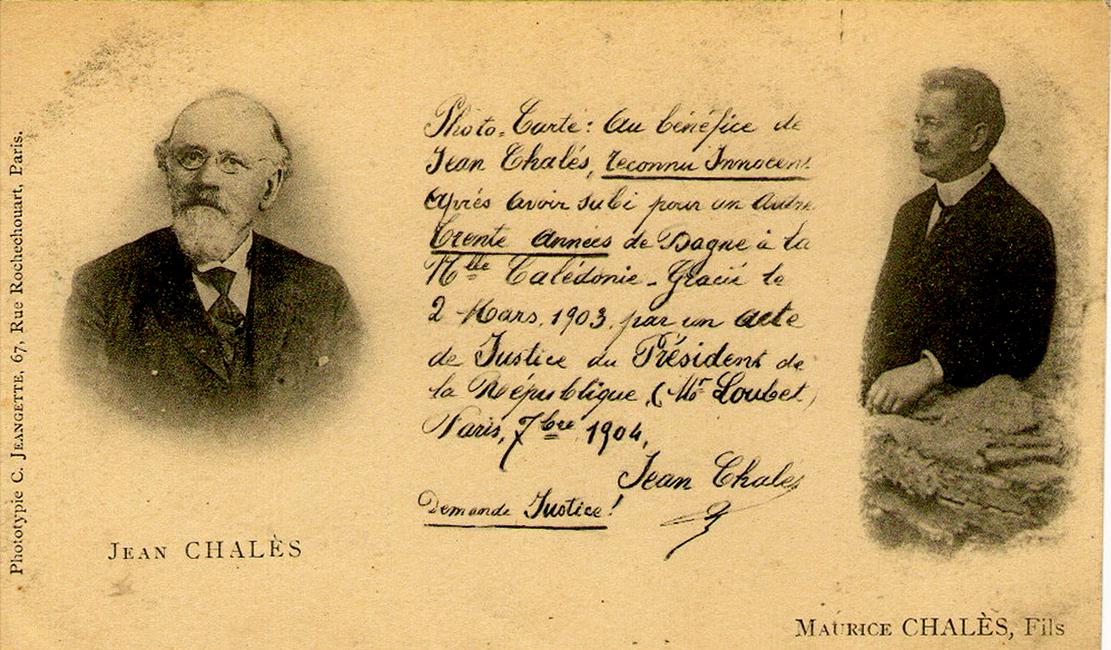 Phototypie C. JEANGETTE, 67, Rue Rochechouart, Paris.
Photo-Carte: Au bénéfice de
Jean Chalés, reconnu Innocent
après avoir subi pour un autre
Trente Années de Bagne à la
Nlle Calédonie - Gracié le
2 Mars 1903, par un acte
de Justice du Président de
la République, (Mr Loubet)
Paris, 7bre 1904,
Jean Chalès
Demande Justice!
JEAN CHALÈS
MAURICE CHALÈS, Fils